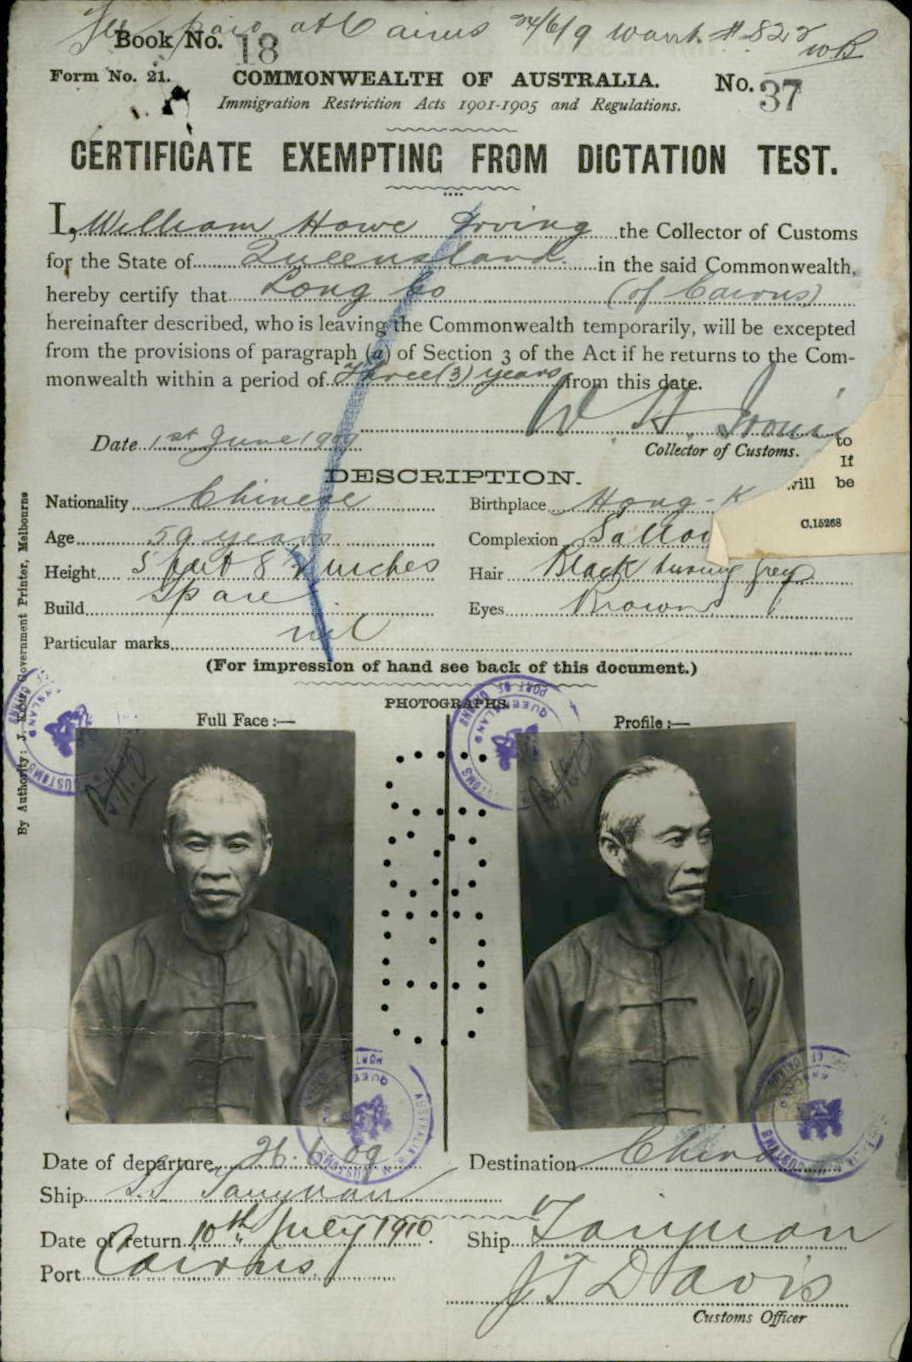 Fee paid at Cairns 24/6/9 Warrt. # 822
WB
Book No. 18
Form No. 21. COMMONWEALTH OF AUSTRALIA. No. 37
Immigration Restriction Acts 1901-1905 and Regulations.
CERTIFICATE EXEMPTING FROM DICTATION TEST.
I, William Howe Irving the Collector of Customs
for the State of Queensland in the said Commonwealth,
hereby certify that Long Go (of Cairns)
hereinafter described, who is leaving the Commonwealth temporarily, will be excepted
from the provisions of paragraph (a) of Section 3 of the Act if he returns to the Com-
monwealth within a period of Three (3) years from this date.
W. H. Irving
Date 1st June 1909
Collector of Customs.
to
If
will be
C.15268
DESCRIPTION.
Nationality Chinese Birthplace Hong-K
Age 59 years Complexion Sallow
Height 5 feet 8 ½ inches Hair Black turning grey
Build Spare Eyes Brown
Particular marks nil
(For impression of hand see back of this document.)
PHOTOGRAPHS.
Full Face :— Profile :—
By Authority: J. Government Printer, Melbourne
Date of departure 26.6.09 Destination China
Ship SS Taiyuan
Date of return 10th July 1910. Ship Taiyuan
Port Cairns
J T Davis
Customs Officer